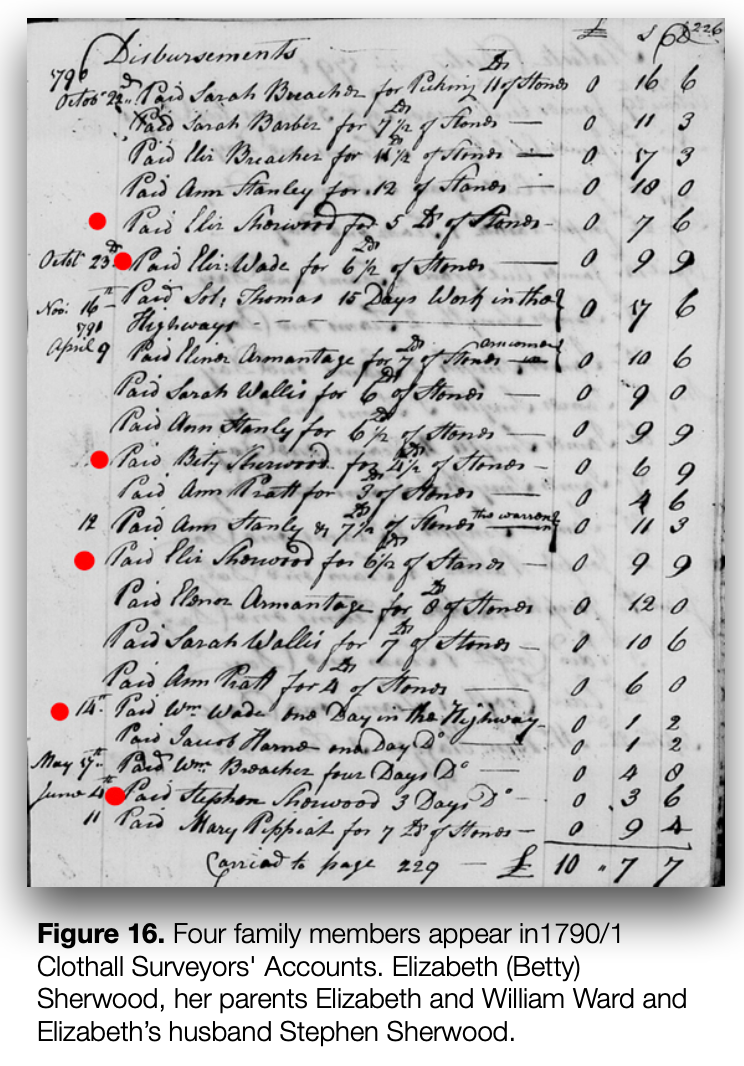 226
Disbursements £ s D
1790
Octobr 22d Paid Sarah Breacher for Picking 11 Lds of Stones 0 16 6
Paid Sarah Barber for 7 1/2 Lds of Stones — 0 11 3
Paid Eliz Breacher for 11 1/2 of Stones — 0 17 3
Paid Ann Stanley for 12 of Stones — 0 18 0
Paid Eliz Sherwood for 5 Lds of Stones - 0 7 6
Octbr 23d Paid Eliz: Wade for 6 1/2 Lds of Stones — 0 9 9
Novr 16th Paid Sol; Thomas 15 Days Work in the
Highways - - 0 17 6
1791
April 9 Paid Elinor Armantage for 7 Lds of Stones 0 10 6
Paid Sarah Wallis for 6 Lds of Stones — 0 9 0
Paid Ann Stanly for 6 1/2 Lds of Stones — 0 9 9
Paid Bety Sherwood for 4 1/2 Lds of Stones - 0 6 9
Paid Ann Pratt for 3 Lds of Stones — 0 4 6
12 Paid Ann Stanly & 7 1/2 Lds of Stones the warren 0 11 3
Paid Eliz Sherwood for 6 1/2 Lds of Stones — 0 9 9
Paid Elenor Armantage for 8 Lds of Stones 0 12 0
Paid Sarah Wallis for 7 Lds of Stones — 0 10 6
Paid Ann Pratt for 4 Lds of Stones — 0 6 0
14th Paid Wm Wade one Day in the Highway 0 1 2
Paid Jacob Harne one Day Do — 0 1 2
May 17th Paid Wm Breacher four Days Do — 0 4 8
June 4th Paid Stephen Sherwood 3 Days Do - 0 3 6
11 Paid Mary Pippiat for 7 Lds of Stones — 0 9 4
Carried to page 229 — £ 10 " 7 7
Figure 16. Four family members appear in1790/1
Clothall Surveyors' Accounts. Elizabeth (Betty)
Sherwood, her parents Elizabeth and William Ward and
Elizabeth’s husband Stephen Sherwood.